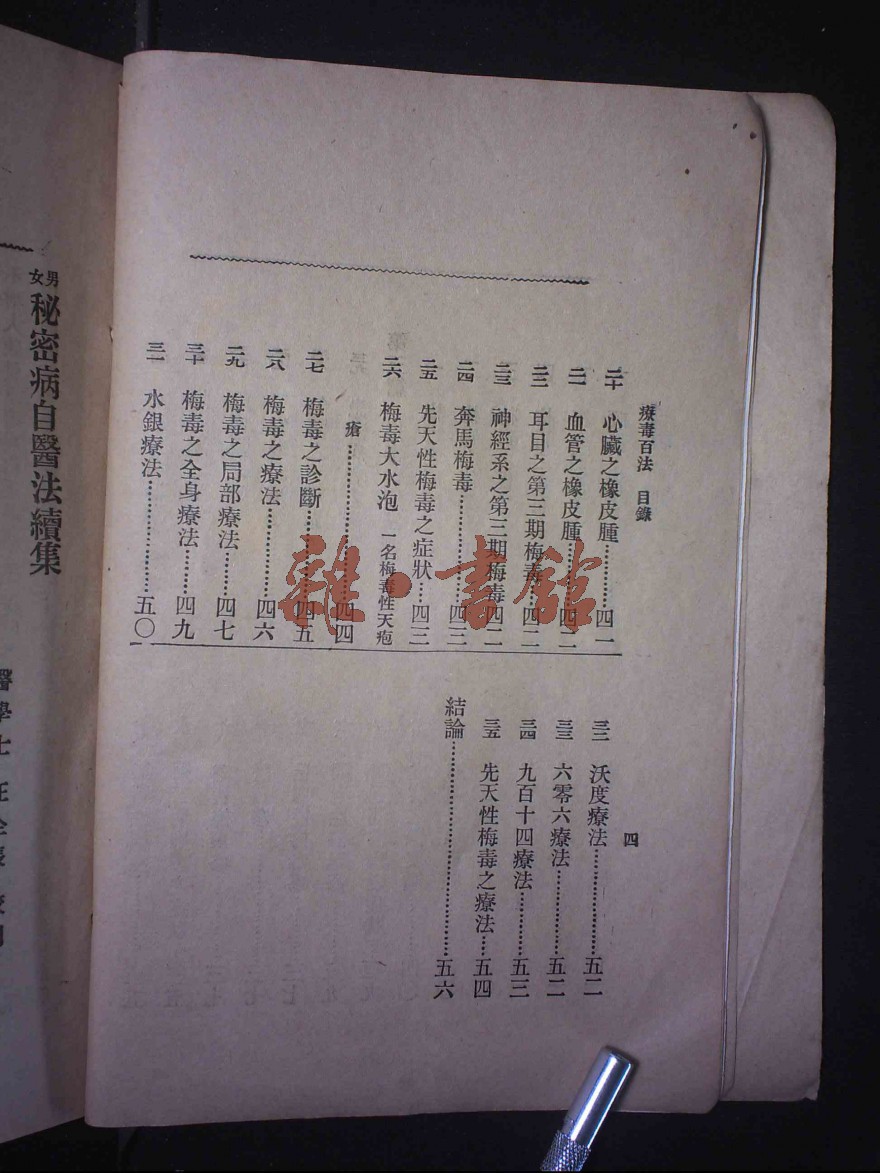 療毒百法　目錄
二十　心臟之橡皮腫…………四一
二一　血管之橡皮腫…………四二
二二　耳目之第三期梅毒……四二
二三　神經系之第三期梅毒四二
二四　奔馬梅毒…………四三
二五　先天性梅毒之症狀…四三
二六　梅毒大水泡　一名梅毒性天疱
瘡…………四四
二七　梅毒之診斷…………四五
二八　梅毒之療法…………四六
二九　梅毒之局部療法……四七
三十　梅毒之全身療法……四九
三一　水銀療法…………五〇
四
三二　沃度療法…………五二
三三　六零六療法…………五二
三四　九百十四療法……五三
三五　先天性梅毒之療法…五四
結論…………五六
男女
秘密病自醫法續集
雜·書館